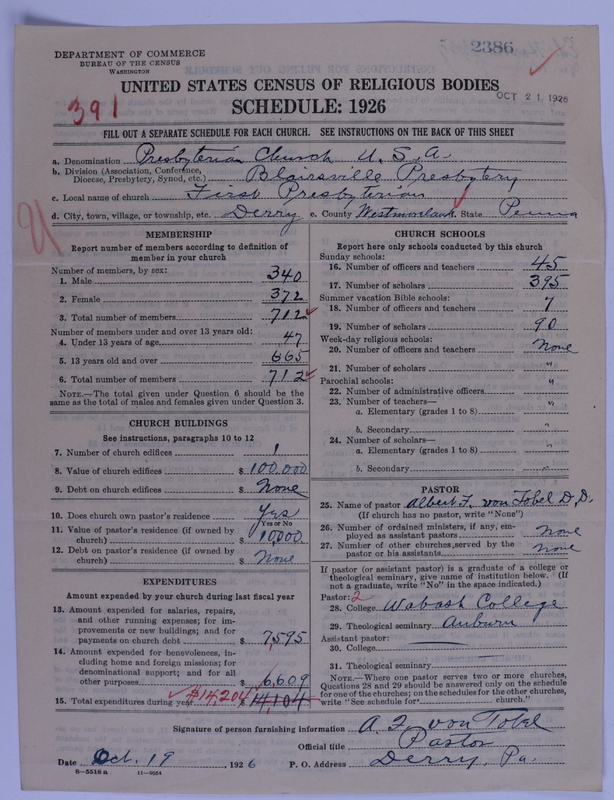 2386
DEPARTMENT OF COMMERCE
BUREAU OF THE CENSUS
WASHINGTON
UNITED STATES CENSUS OF RELIGIOUS BODIES
OCT 21 1926
391
SCHEDULE: 1926
FILL OUT A SEPARATE SCHEDULE FOR EACH CHURCH. SEE INSTRUCTIONS ON THE BACK OF THIS SHEET
a. Denomination Presbyterian Church U. S. A.
b. Division (Association, Conference, Diocese, Presbytery, Synod, etc.) Blairsville Presbytery
c. Local name of church First Presbyterian
d. City, town, village, or township, etc. Derry e. County Westmoreland State Penna
MEMBERSHIP
Report number of members according to definition of
member in your church
Number of members, by sex:
1. Male 340
2. Female 372
3. Total number of members 712
Number of members under and over 13 years old:
4. Under 13 years of age 47
5. 13 years old and over 665
6. Total number of members 712
NOTE.—The total given under Question 6 should be the
same as the total of males and females given under Question 3.
CHURCH BUILDINGS
See instructions, paragraphs 10 to 12
7. Number of church edifices 1
8. Value of church edifices $ 100,000
9. Debt on church edifices $ None
10. Does church own pastor's residence Yes
Yes or No
11. Value of pastor's residence (if owned by
church) $ 10,000
12. Debt on pastor's residence (if owned by
church) $ None
EXPENDITURES
Amount expended by your church during last fiscal year
13. Amount expended for salaries, repairs,
and other running expenses; for im-
provements or new buildings; and for
payments on church debt $ 7,595
14. Amount expended for benevolences, in-
cluding home and foreign missions; for
denominational support; and for all
other purposes $ 6,609
15. Total expenditures during year $14,204 14,104
CHURCH SCHOOLS
Report here only schools conducted by this church
Sunday schools:
16. Number of officers and teachers 45
17. Number of scholars 395
Summer vacation Bible schools:
18. Number of officers and teachers 7
19. Number of scholars 90
Week-day religious schools:
20. Number of officers and teachers None
21. Number of scholars "
Parochial schools:
22. Number of administrative officers "
23. Number of teachers—
a. Elementary (grades 1 to 8) "
b. Secondary "
24. Number of scholars—
a. Elementary (grades 1 to 8) "
b. Secondary "
PASTOR
25. Name of pastor Albert F. von Tobel D.D.
(If church has no pastor, write "None")
26. Number of ordained ministers, if any, em-
ployed as assistant pastors None
27. Number of other churches served by the
pastor or his assistants None
If pastor (or assistant pastor) is a graduate of a college or
theological seminary, give name of institution below. (If
not a graduate, write "No" in the space indicated.)
Pastor: 2
28. College Wabash College
29. Theological seminary Auburn
Assistant pastor:
30. College
31. Theological seminary
NOTE.—Where one pastor serves two or more churches,
Questions 28 and 29 should be answered only on the schedule
for one of the churches; on the schedules for the other churches,
write "See schedule for church."
Signature of person furnishing information A. F. von Tobel
Official title Pastor
Date Oct. 19, 1926 P. O. Address Derry, Pa.
8—5518 a 11—9054